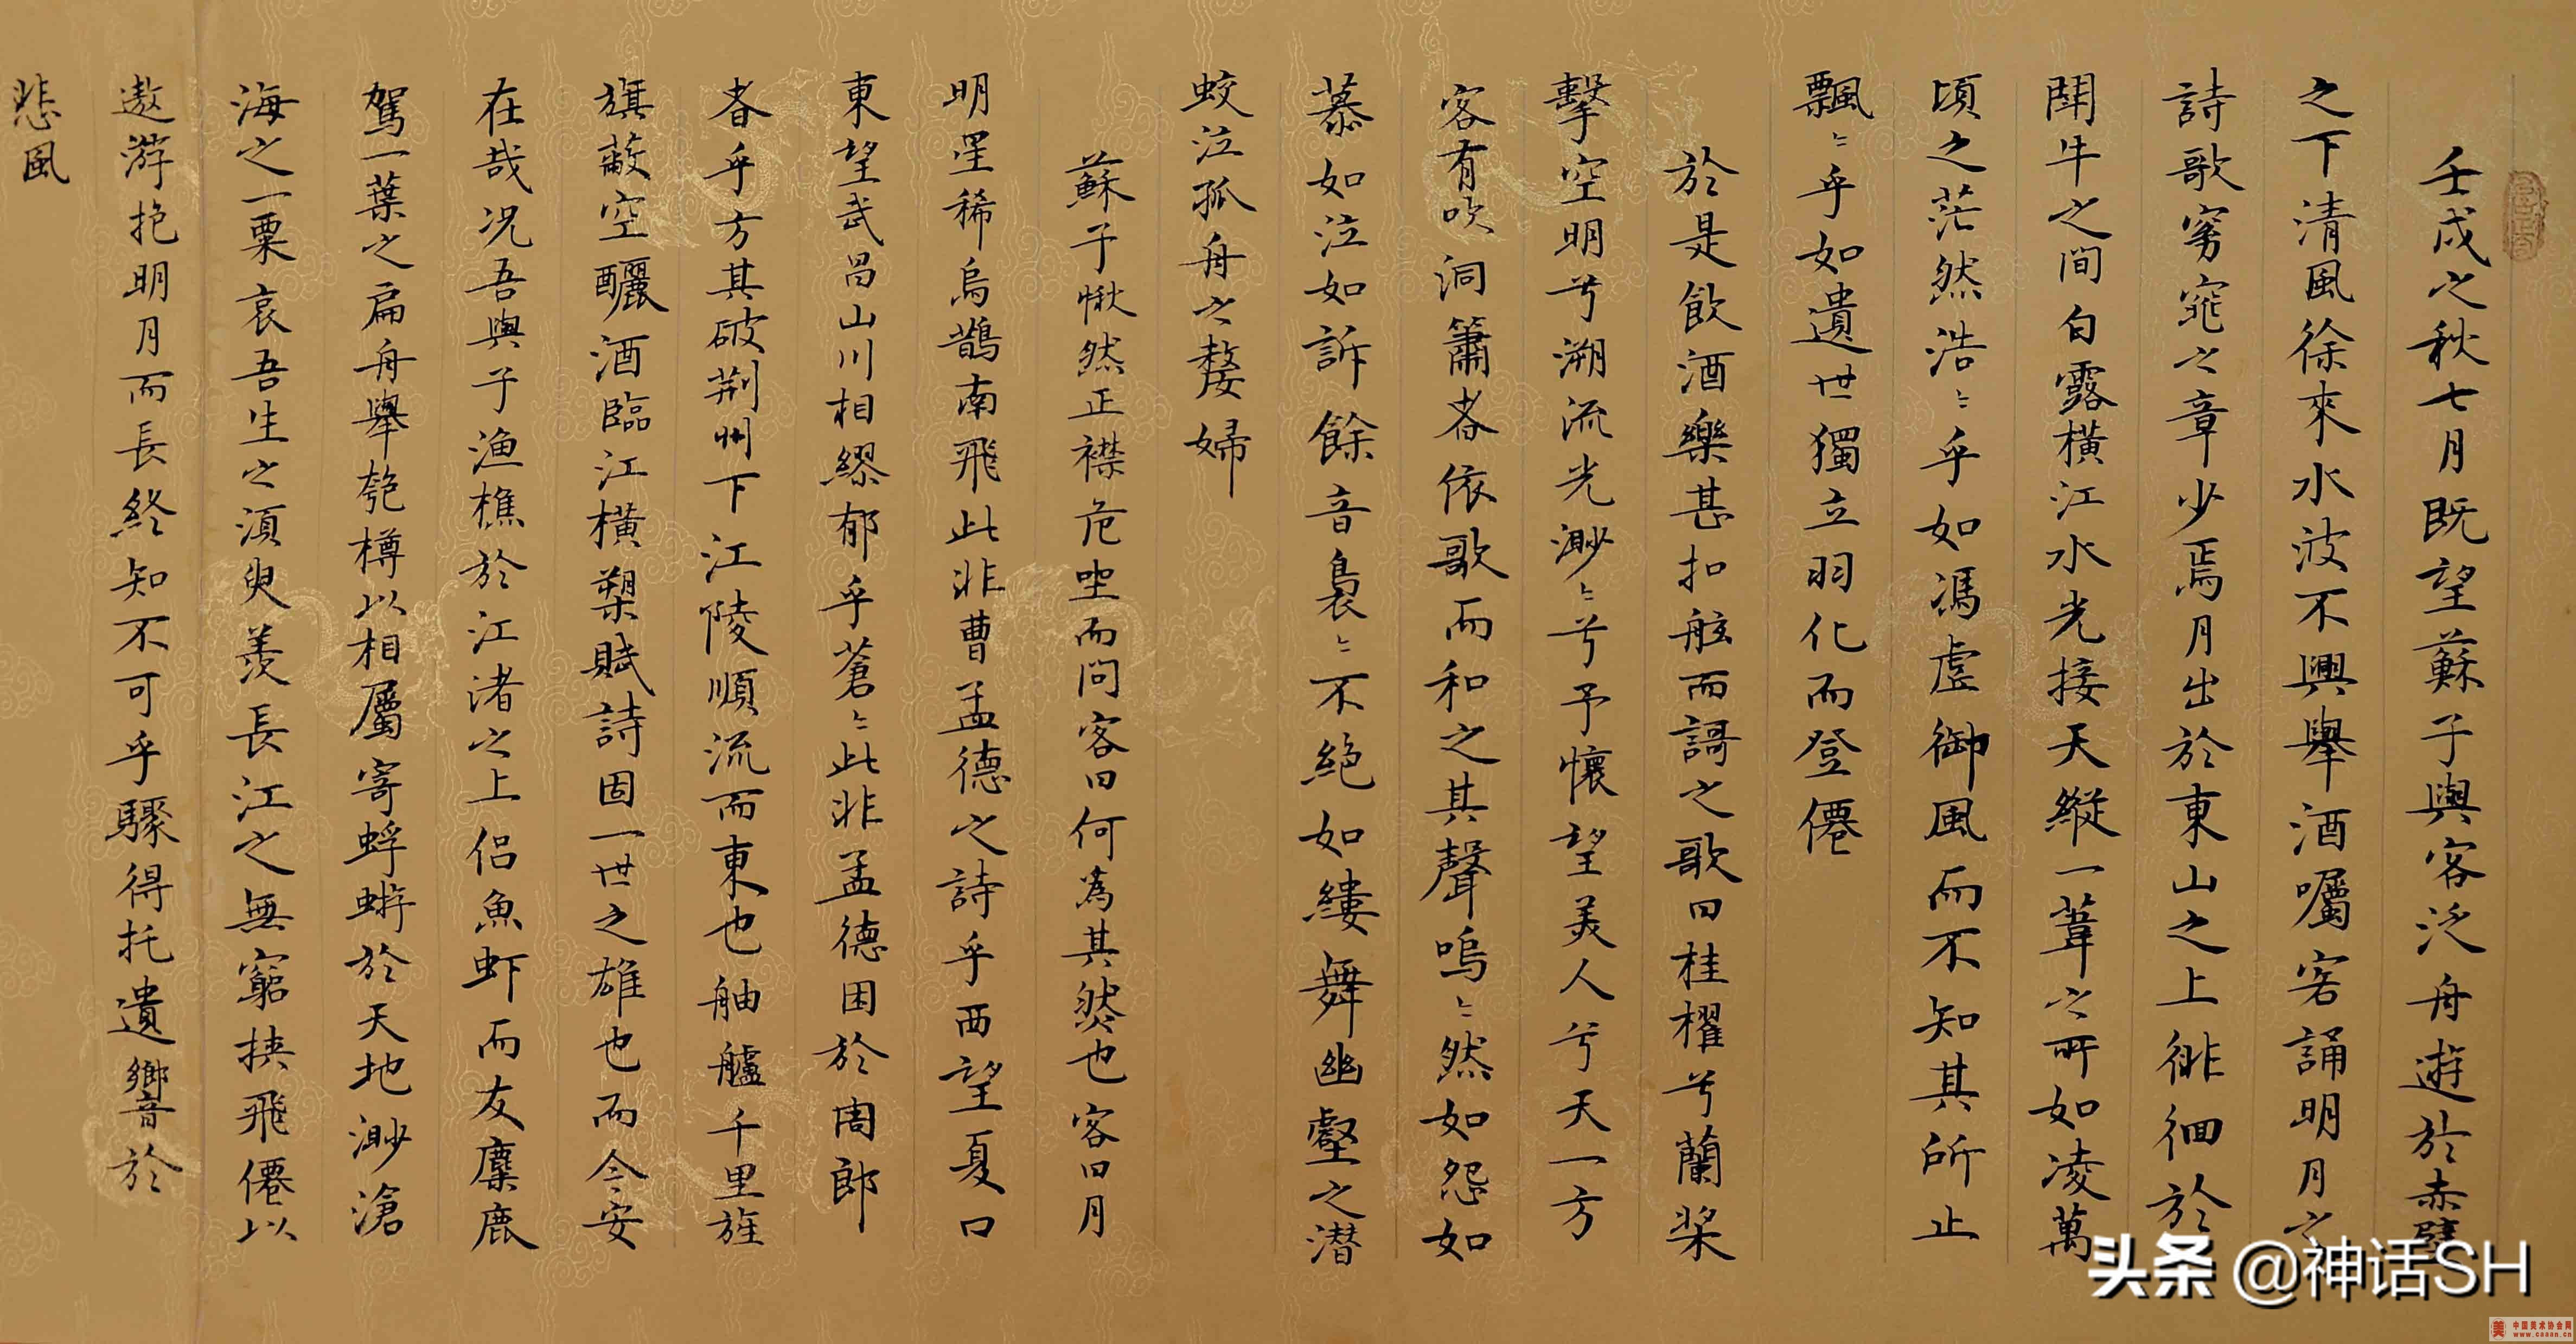 壬戌之秋七月既望蘇子與客泛舟遊於赤壁
之下清風徐來水波不興舉酒囑客誦明月之
詩歌窈窕之章少焉月出於東山之上徘徊於
鬥牛之間白露橫江水光接天縱一葦之所如凌萬
頃之茫然浩〻乎如馮虛御風而不知其所止
飄〻乎如遺世獨立羽化而登僊
於是飲酒樂甚扣舷而謌之歌曰桂櫂兮蘭槳
擊空明兮溯流光渺〻兮予懷望美人兮天一方
客有吹洞簫者依歌而和之其聲嗚〻然如怨如
慕如泣如訴餘音裊〻不絕如縷舞幽壑之潜
蛟泣孤舟之嫠婦
蘇子愀然正襟危坐而問客曰何為其然也客曰月
明星稀烏鵲南飛此非曹孟德之詩乎西望夏口
東望武昌山川相繆郁乎蒼〻此非孟德困於周郎
者乎方其破荆州下江陵順流而東也舳艫千里旌
旗蔽空釃酒臨江橫槊賦詩固一世之雄也而今安
在哉况吾與子渔樵於江渚之上侣魚虾而友麋鹿
駕一葉之扁舟舉匏樽以相屬寄蜉蝣於天地渺滄
海之一粟哀吾生之須臾羨長江之無窮挾飛僊以
遨游抱明月而長終知不可乎驟得托遺響於
悲風
头条 @神话SH
中国美术协会网